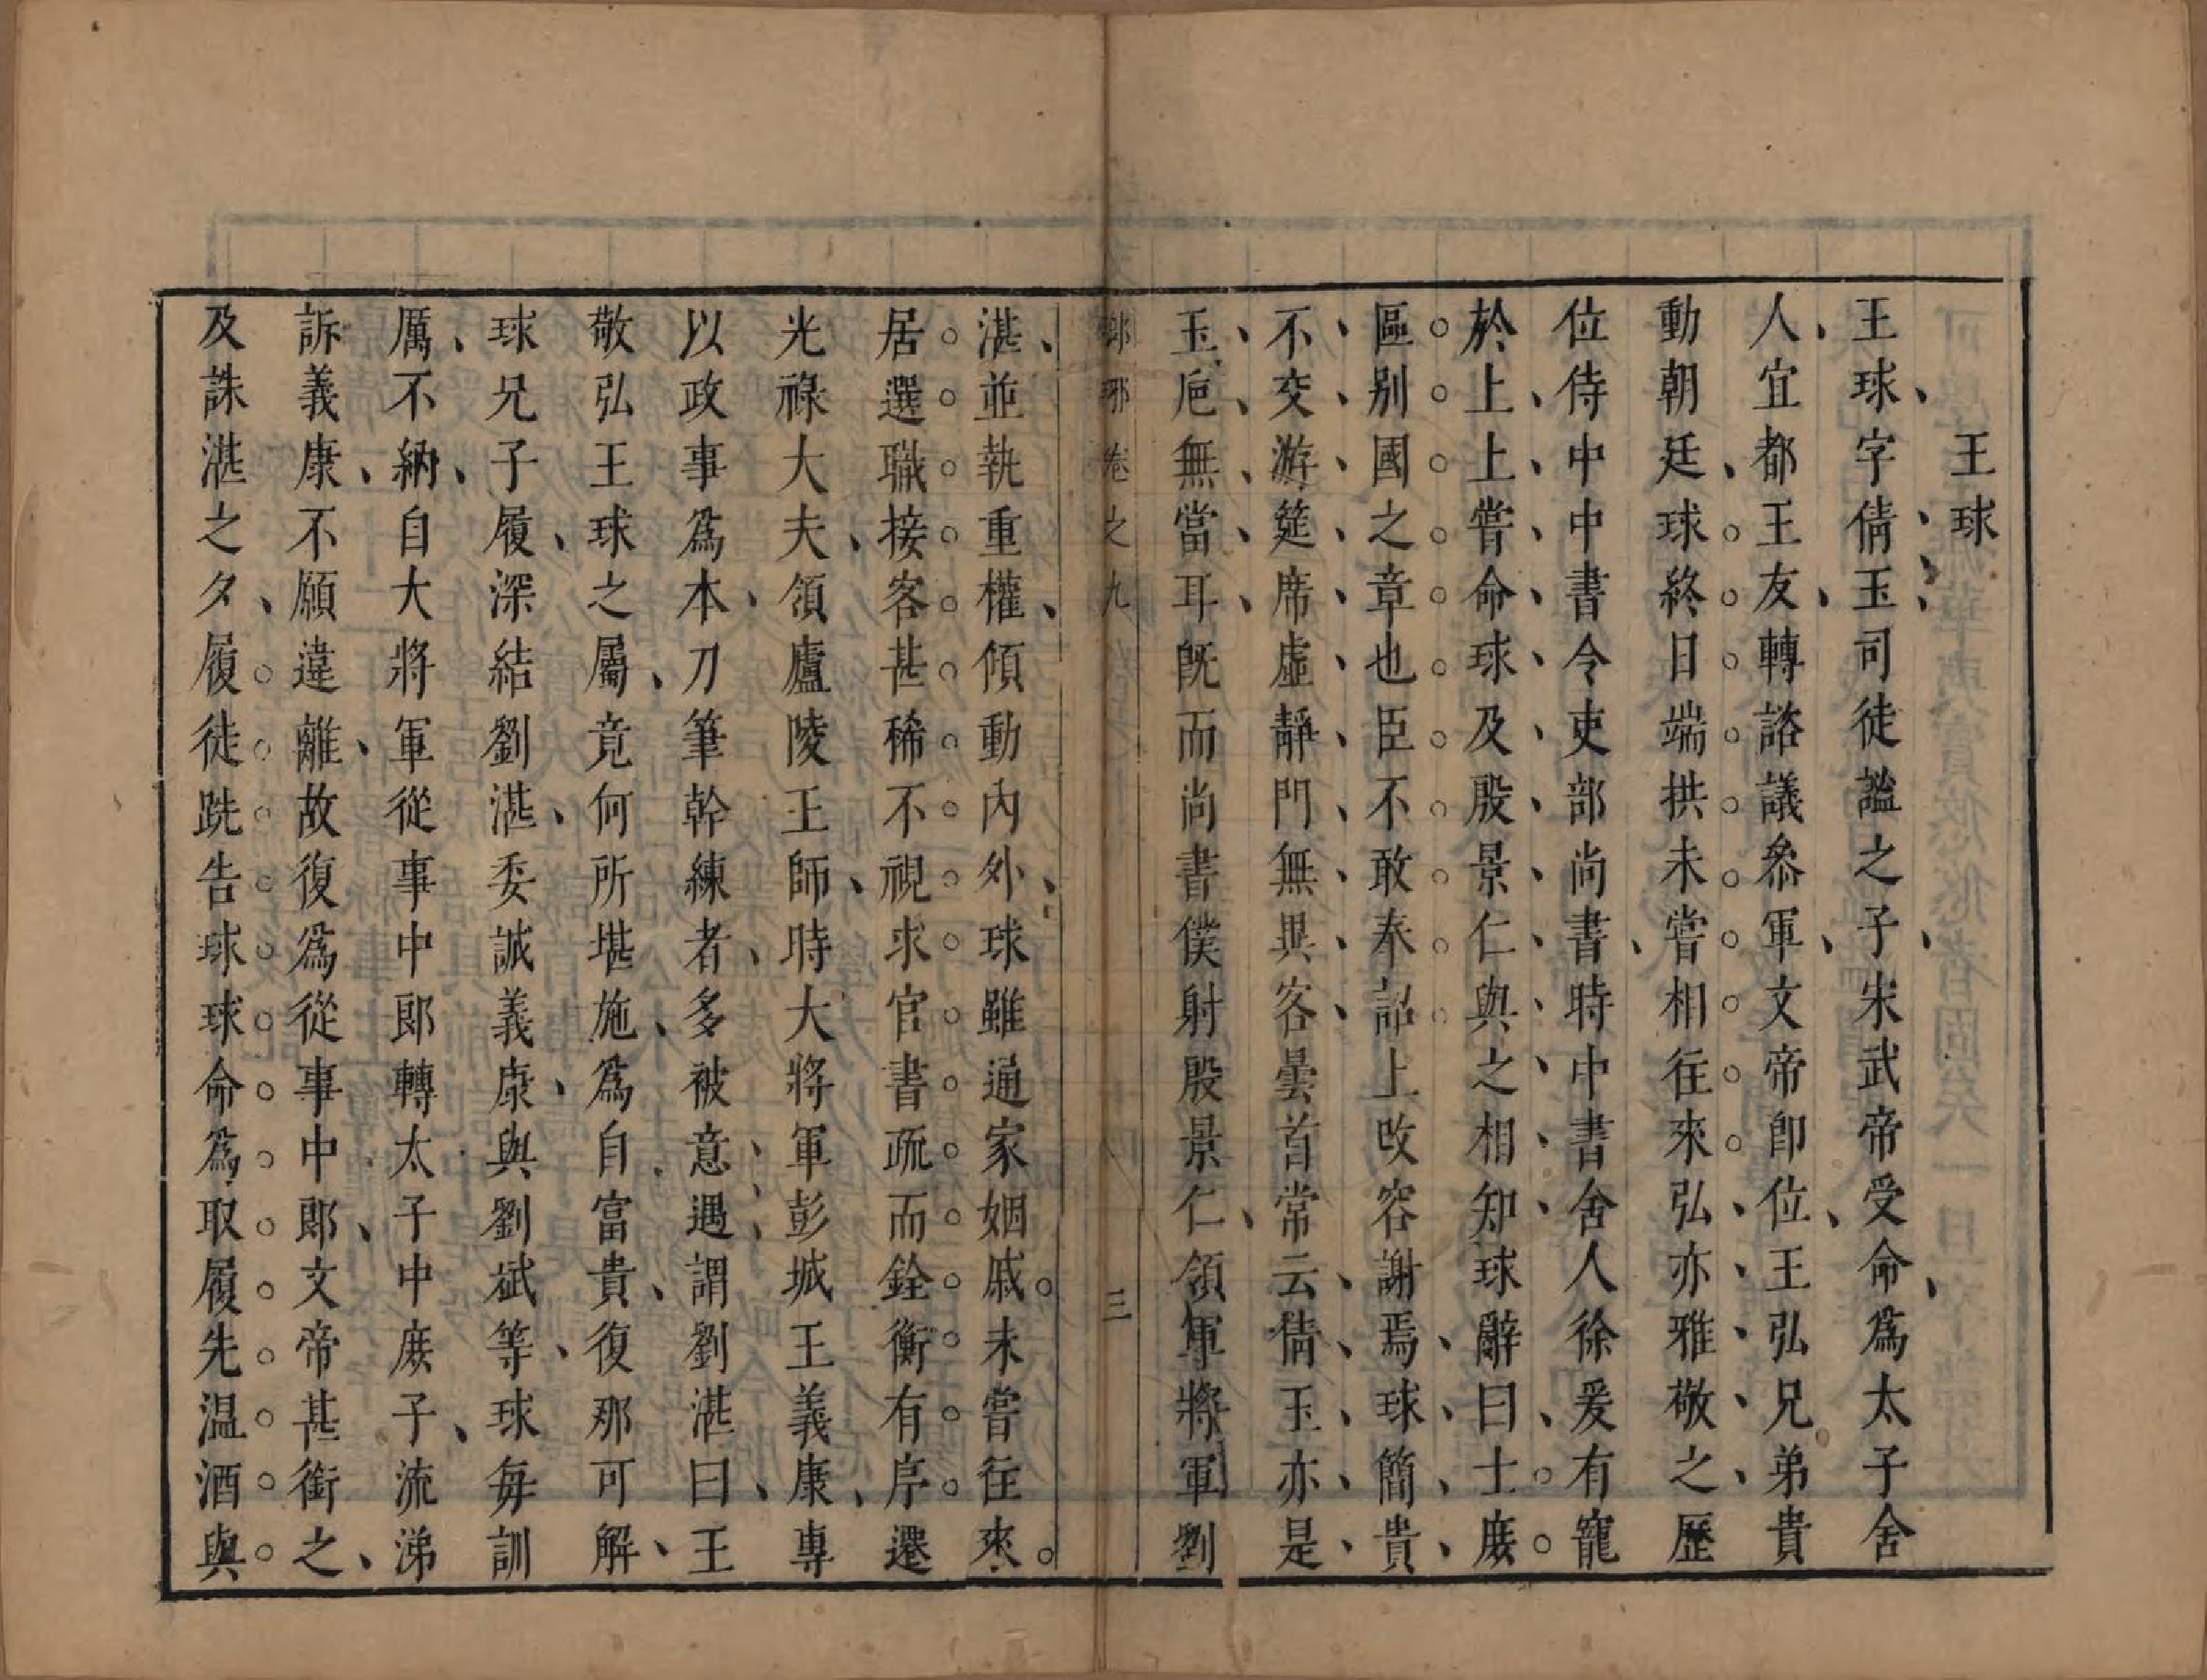 王球
王球字倩玉司徒謐之子宋武帝受命爲太子舍
人宜都王友轉諮議叅軍文帝卽位王弘兄弟貴
動朝廷球終日端拱未嘗相往來弘亦雅敬之歷
位侍中中書令吏部尚書時中書舍人徐爰有寵
於上上嘗命球及殷景仁與之相知球辭曰士庻
區别國之章也臣不敢奉詔上改容謝焉球簡貴
不交游筵席虛靜門無異客曇首常云倩玉亦是
玉巵無當耳旣而尚書僕射殷景仁領軍將軍劉
鄉邪卷之九 三
湛並執重權傾動內外球雖通家姻戚未嘗往來
居選職接客甚稀不視求官書疏而銓衡有序遷
光祿大夫領廬陵王師時大將軍彭城王義康專
以政事爲本刀筆幹練者多被意遇謂劉湛曰王
敬弘王球之屬竟何所堪施爲自富貴復那可解
球兄子履深結劉湛委誠義康與劉斌等球每訓
厲不納自大將軍從事中郎轉太子中庻子流涕
訴義康不願違離故復爲從事中郎文帝甚銜之
及誅湛之夕履徒跣告球球命爲取履先温酒與